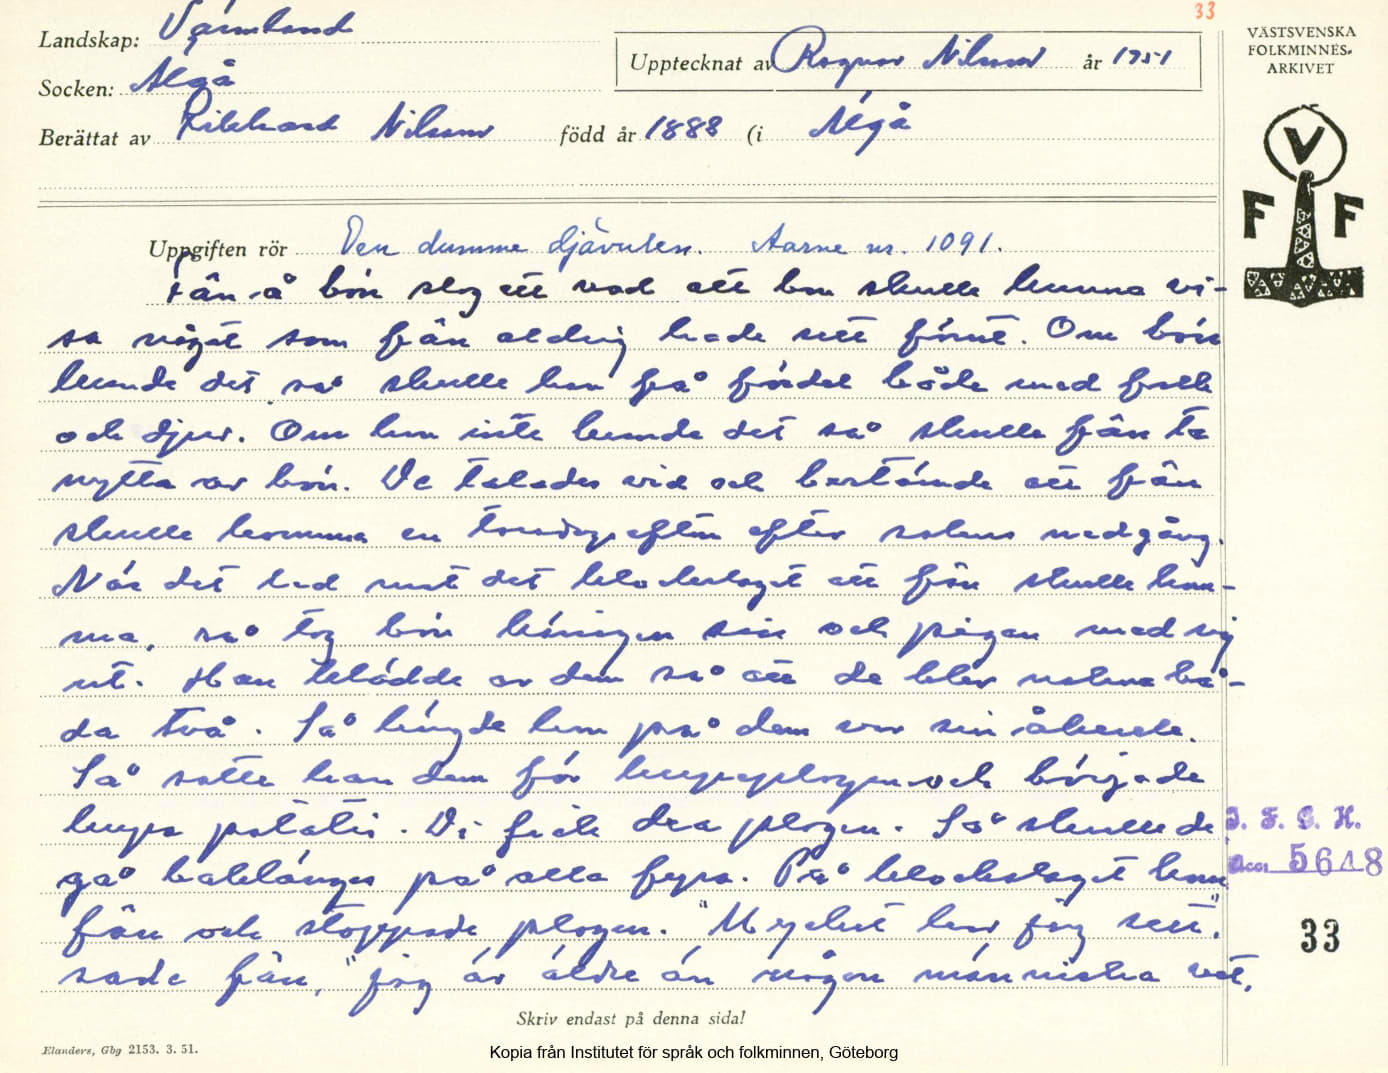 33
Landskap: Värmland
Socken: Älgå
Upptecknat av Ragnar Nilsson år 1951
Berättat av Rikhard Nilsson född år 1888 (i Älgå
VÄSTSVENSKA
FOLKMINNES-
ARKIVET
V
F F
Uppgiften rör Den dumme djävulen. Aarne nr. 1091.
Fän å bón slog ett vad att bon skulle kunna vi-
sa något som fän aldrig hade sett förut. Om bón
kunde det så skulle han få fördel både med folk
och djur. Om han inte kunde det så skulle fän ta
nytta av bón. De talades vid och bestämde att fän
skulle komma en torsdagsefton efter solens nedgång.
När det led mot det klockslaget att fän skulle kom-
ma, så tog bón käringen sin och pigan med sig
ut. Han klädde av dem så att de blev nakna bå-
da två. Så hängde han på dem var sin åkersele.
Så satte han dem för kupeplogen och började
kupa potatis. De fick dra plogen. Så skulle de
gå baklänges på alla fyra. På klockslaget kom
fän och stoppade plogen. "Mycket har jag sett",
sade fän, "jag är äldre än någon människa vet,
I. F. G. H.
Acc. 5648
33
Skriv endast på denna sida!
Elanders, Gbg 2153. 3. 51.
Kopia från Institutet för språk och folkminnen, Göteborg